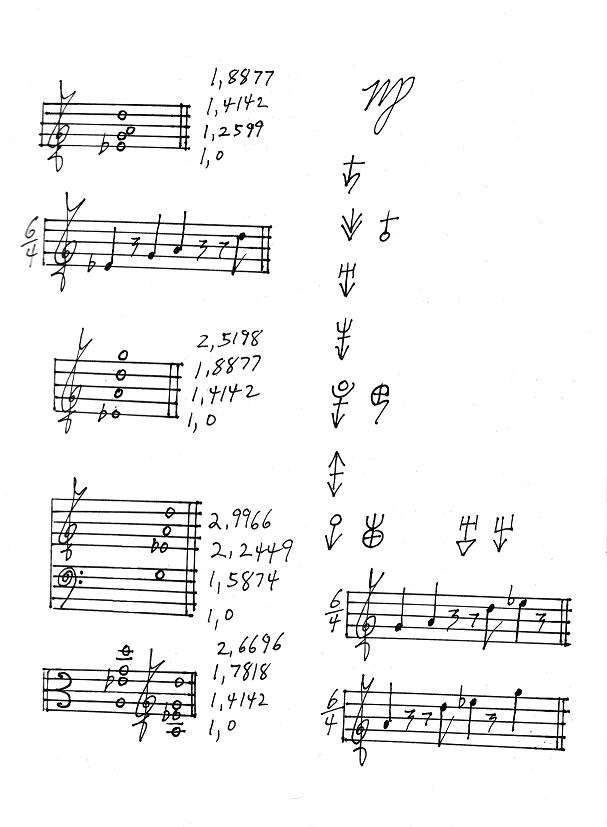 1,8877
1,4142
1,2599
1,0
6
4
2,5198
1,8877
1,4142
1,0
2,9966
2,2449
1,5874
1,0
2,6696
1,7818
1,4142
1,0
6
4
6
4